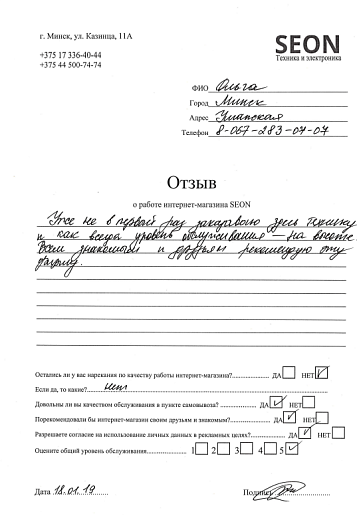 г. Минск, ул. Казинца, 11А
SEON
Техника и электроника
+375 17 336-40-44
+375 44 500-74-74
ФИО Ольга
Город Минск
Адрес Уманская
Телефон 8-067-283-07-07
Отзыв
о работе интернет-магазина SEON
Уже не в первой раз заказываю здесь технику
и как всегда уровень обслуживания — на высоте.
Всем знакомым и друзьям рекомендую эту
фирму.
Остались ли у вас нарекания по качеству работы интернет-магазина? ДА НЕТ ✓
Если да, то какие? нет
Довольны ли вы качеством обслуживания в пункте самовывоза? ДА ✓ НЕТ
Порекомендовали бы интернет-магазин своим друзьям и знакомым? ДА ✓ НЕТ
Разрешаете согласие на использование личных данных в рекламных целях? ДА ✓ НЕТ
Оцените общий уровень обслуживания 1 2 3 4 5 ✓
Дата 18.01.19 Подпись